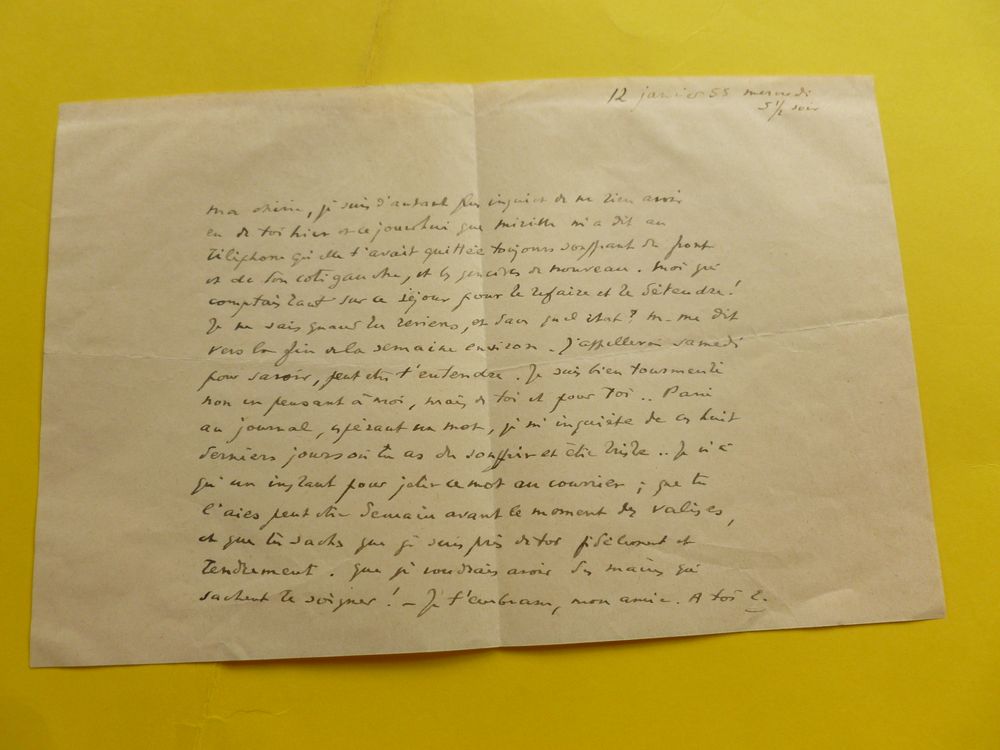 12 janvier 55 mercredi
5 1/2 soir
ma chérie, je suis d'autant plus inquiet de ne rien avoir
eu de toi hier et ce jourd'hui que mireille m'a dit au
téléphone qu'elle t'avait quittée toujours souffrant du front
et de ton côté gauche, et les gencives de nouveau. Moi qui
comptais tant sur ce séjour pour te refaire et te détendre!
Je ne sais quand tu reviens, et dans quel état? M. me dit
vers la fin de la semaine environ. J'appellerai samedi
pour savoir, peut être t'entendre. Je suis bien tourmenté
non en pensant à moi, mais de toi et pour toi.. Passé
au journal, espérant un mot, je m'inquiète de ces huit
derniers jours où tu as dû souffrir et être triste.. Je n'ai
qu'un instant pour jeter ce mot au courrier ; que tu
l'aies peut être demain avant le moment des valises,
et que tu saches que je suis près de toi fidèlement et
tendrement. Que je voudrais avoir des mains qui
sachent te soigner! – Je t'embrasse, mon amie. A toi